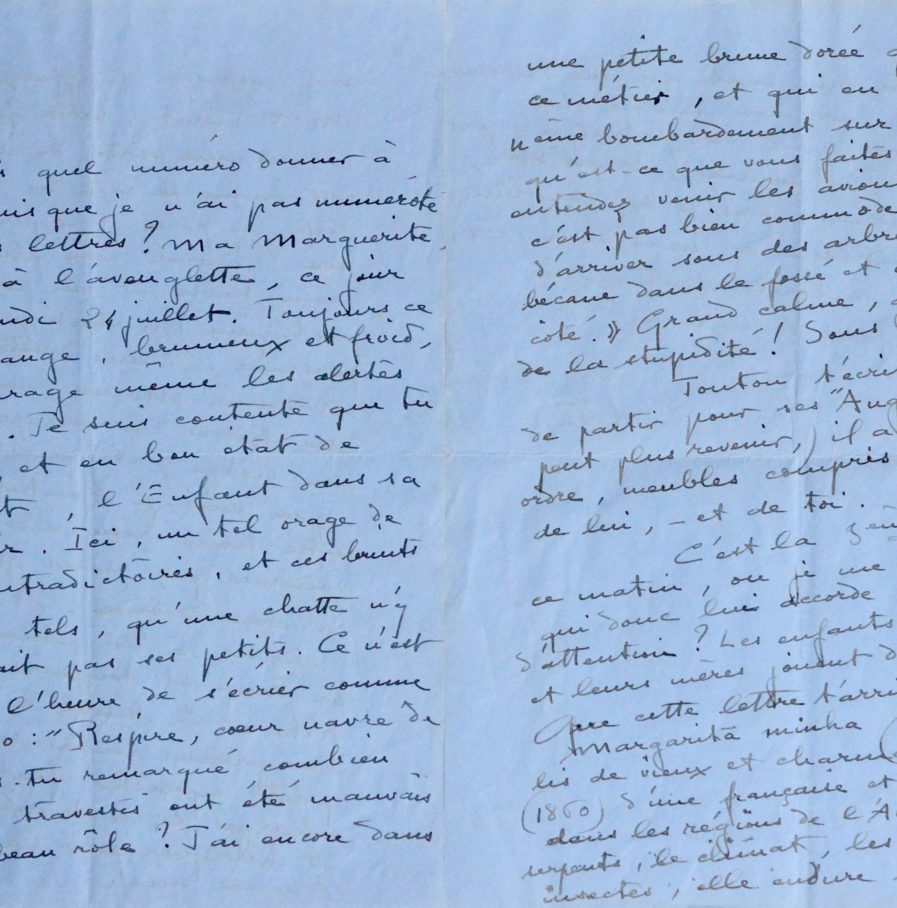 quel numéro donner à
puisque je n'ai pas numéroté
lettres? Ma Marguerite,
à l'aveuglette, ce jour
24 juillet. Toujours ce
, brumeux et froid,
même les alertes
. Je suis contente que tu
et en bon état de
, l'Enfant dans sa
. Ici, un tel orage de
contradictoires, et ces bruits
tels, qu'une chatte n'y
pas ses petits. Ce n'est
l'heure de s'écrier comme
o : "Respire, cœur navré de
-tu remarqué combien
travestis ont été mauvais
beau rôle? J'ai encore dans
une petite brune dorée
ce métier, et qui en
même bombardement sur
qu'est-ce que vous faites
entendez venir les avions
c'est pas bien commode
d'arriver sous des arbres
bécane dans le fossé et
côté." Grand calme,
de la stupidité! Sous
Touton t'écri
de partir pour ses "Aug
peut plus revenir,) il a
ordre, meubles compris
de lui, - et de toi.
C'est la
ce matin, ou je me
qui donc lui accorde
d'attention? Les enfants
et leurs mères jouent
Que cette lettre t'arri
Margarita minha
lis de vieux et charm
(1860) d'une française et
dans les régions de l'A
serpents, le climat, les
insectes, elle endure